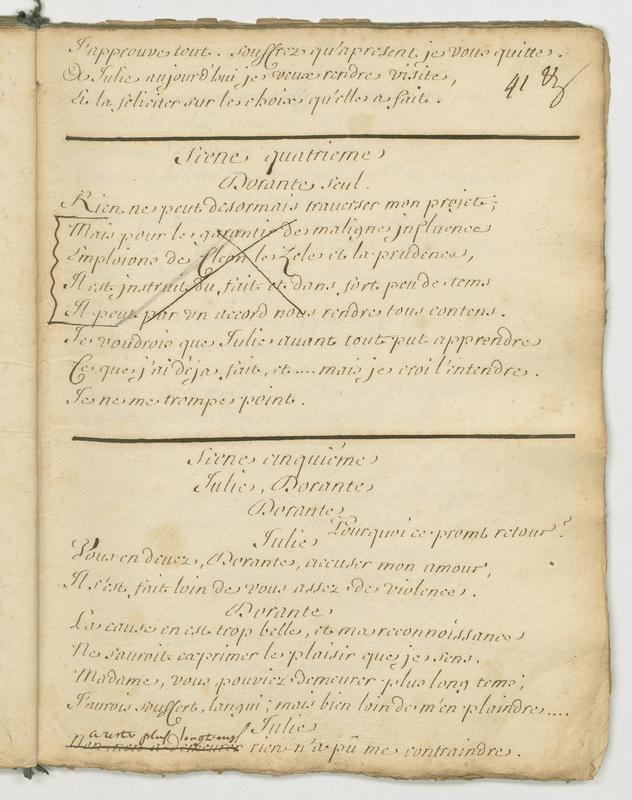 J'approuve tout. souffrez qu'apresent je vous quitte.
A Julie aujourd'hui je veux rendre visite,
Et la feliciter sur le choix qu'elle a fait.
41
Scene quatrieme
Dorante seul.
Rien ne peut desormais traverser mon projet;
Mais pour le garantir de maligne influence
Emploions de Cleon le Zele et la prudence,
Il est instruit du fait et dans fort peu de tems
Il peut par un accord nous rendre tous contens.
Je voudrois que Julie avant tout put apprendre
Ce que j'ai deja fait, et .... mais je croi l'entendre.
Je ne me trompe point.
Scene cinquiéme
Julie, Dorante
Dorante
Pourquoi ce promt retour?
Julie
Vous en devez, Dorante, accuser mon amour,
Il s'est fait loin de vous assez de violence.
Dorante
La cause en est trop belle, et ma reconnoissance
Ne sauroit exprimer le plaisir que je sens.
Madame, vous pouviez demeurer plus long tems;
J'aurois souffert, langui; mais bien loin de m'en plaindre....
Julie
a rester plus longtems
a demeurer rien n'a pû me contraindre.